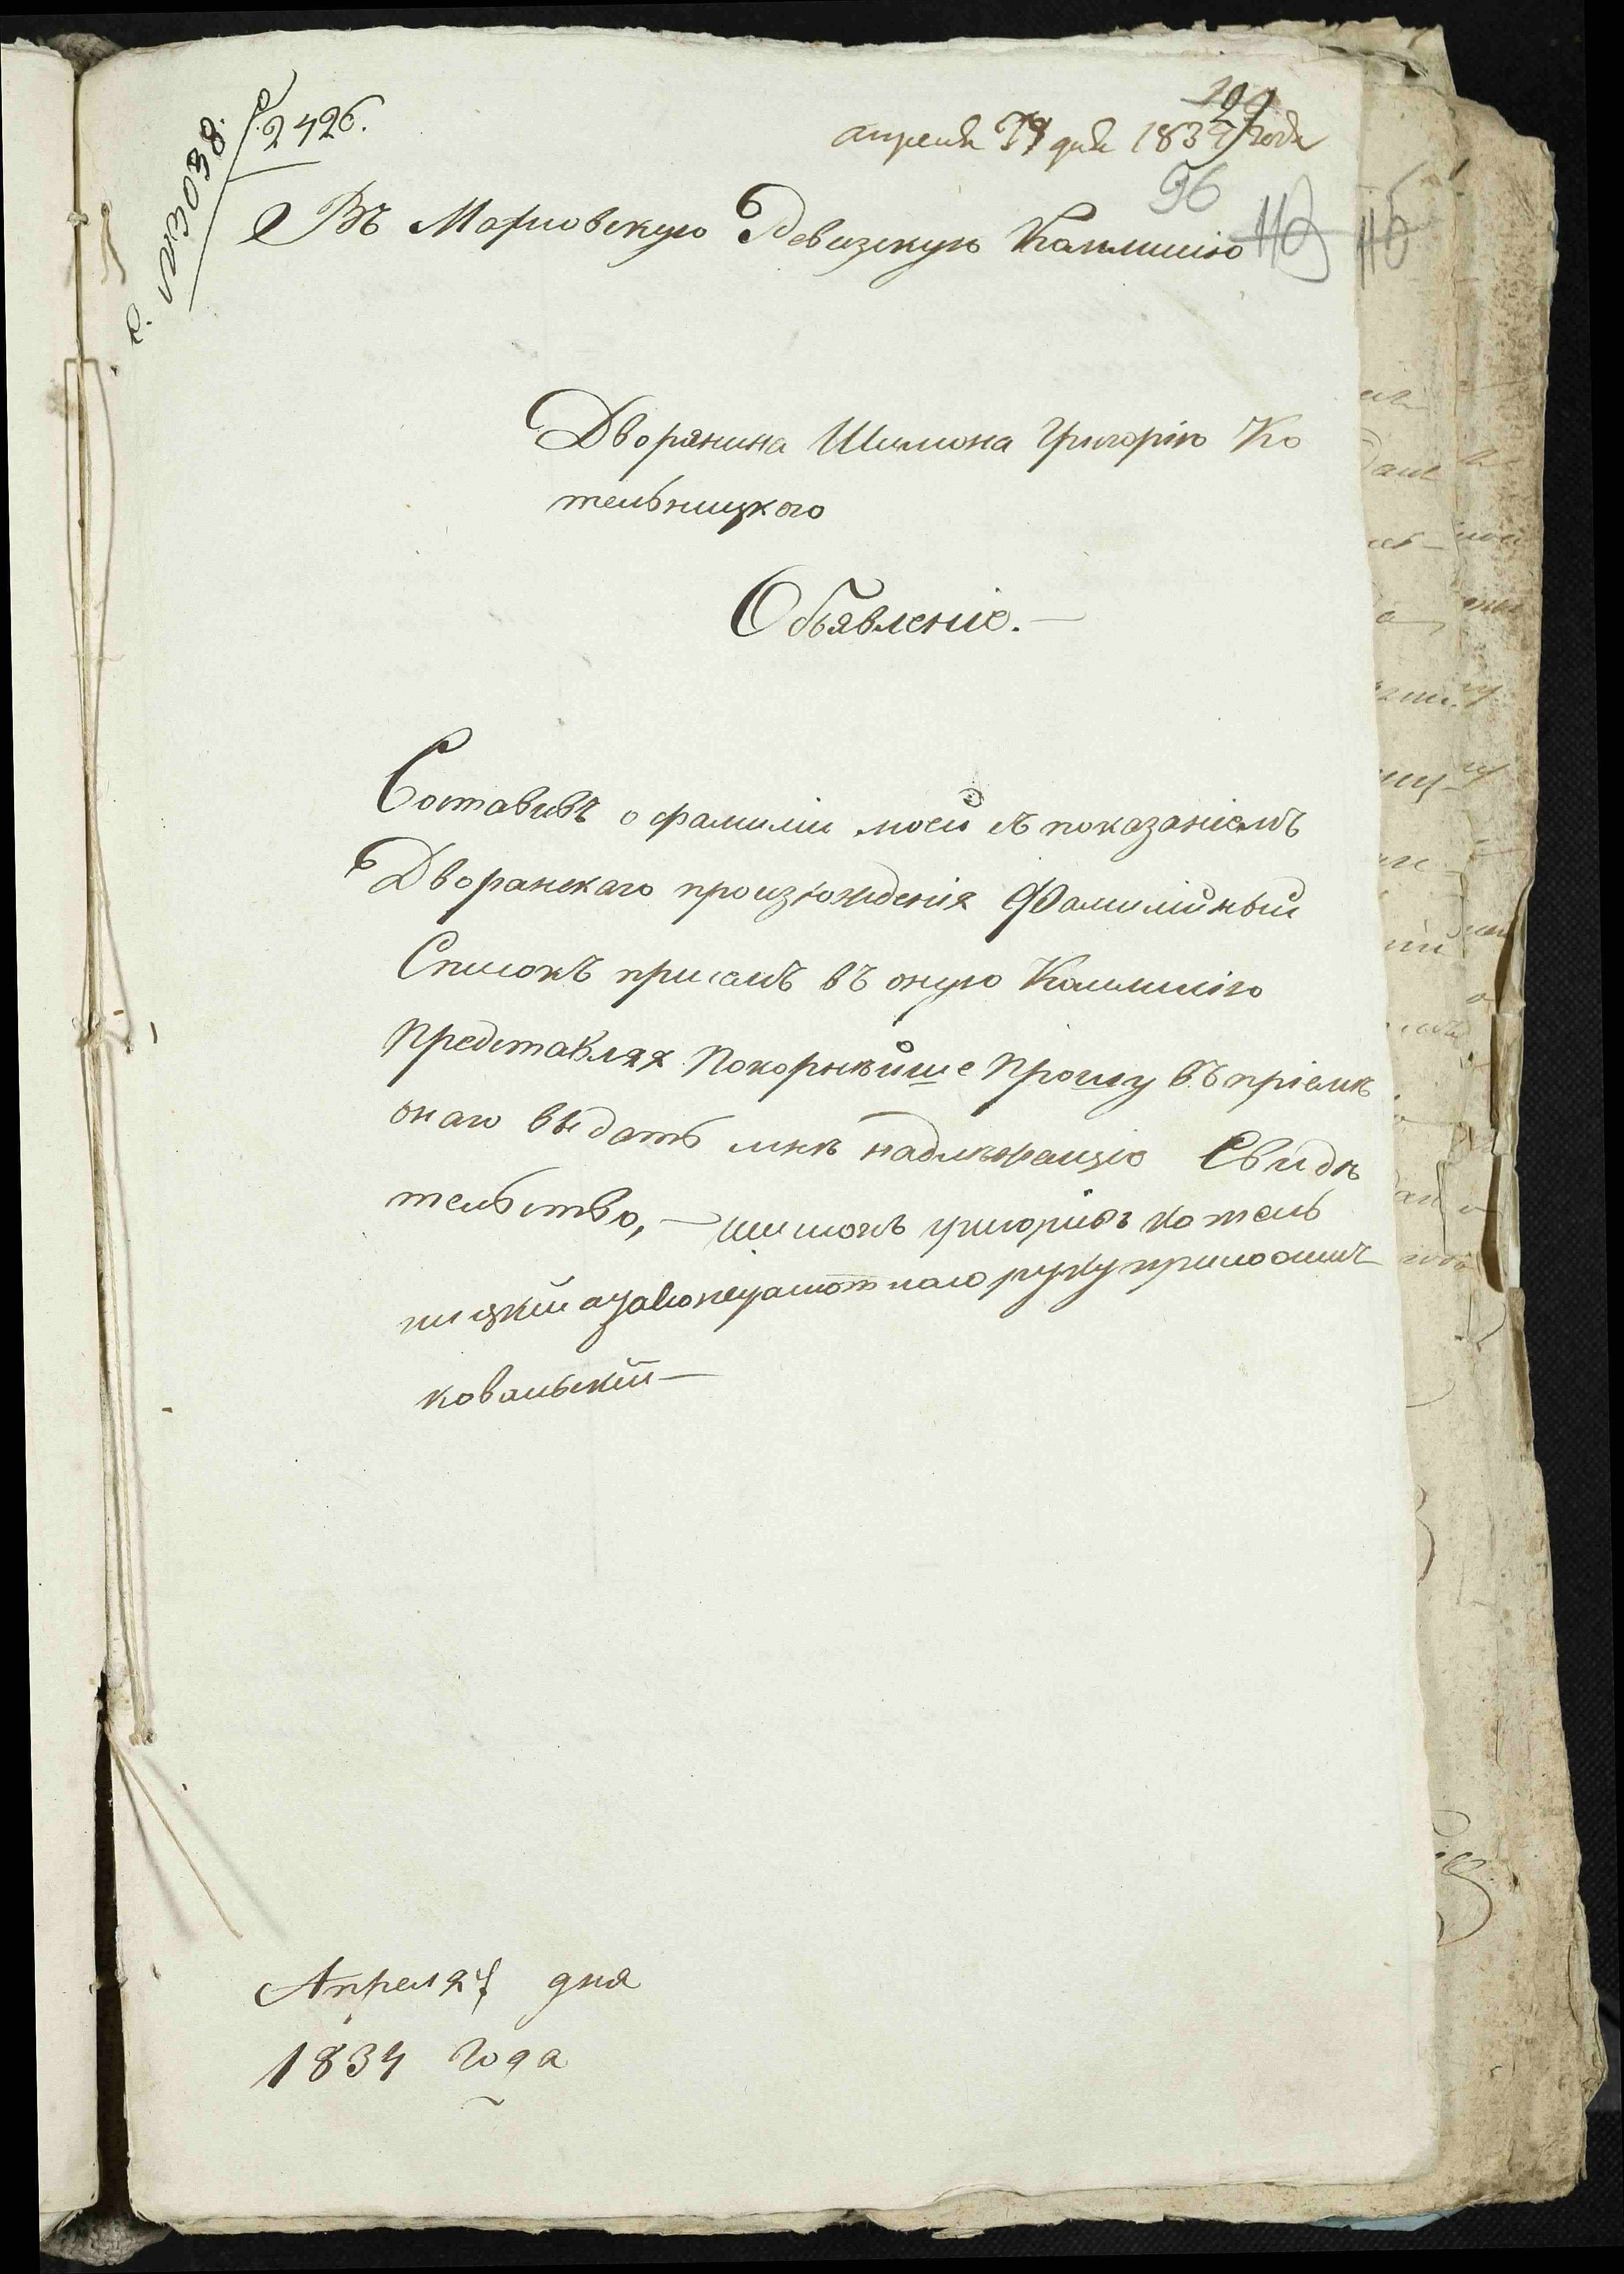 №3038.
2426.
апреля 27 дня 1834 года
96
Въ Мариовскую Ревизскую Коммисію
Дворянина Шимона Григорію Ко
тельницкого
Объявленіе.—
Составивъ о фамиліи моей съ показаніемъ
Дворанскаго произхожденія Фамилійный
Списокъ при семъ въ оную Коммисію
представляя Покорнѣйше прошу въ пріемѣ
онаго выдать мнѣ Свидѣ
тельство, — шимонъ григоріевъ котель
ницкій руку приложилъ
ковальскій —
Апреля 27 дня
1834 года